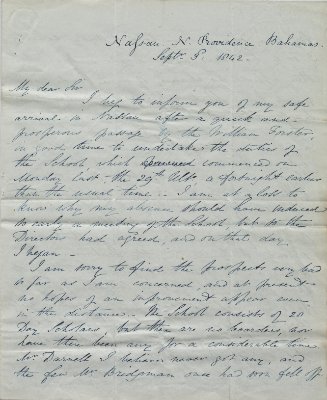 Nassau N. Providence Bahamas
Septr. 5. 1842.
My dear Sir
I beg to inform you of my safe
arrival in Nassau after a quick and
prosperous passage by the William Forster,
in good time to undertake the duties of
the School, which commenced on
Monday last the 29th Ulto. a fortnight earlier
than the usual time. I am at a loss to
know why my absence should have induced
so early a meeting of the School but so the
Directors had agreed, and on that day
I began —
I am sorry to find the prospects very bad
so far as I am concerned, and at present
no hopes of an improvement appear even
in the distance. The School consists of 20
Day Scholars, but there are no boarders, nor
have there been any for a considerable time.
Mr Darnell I believe never got any, and
the few Mr Bridgman once had soon fell off